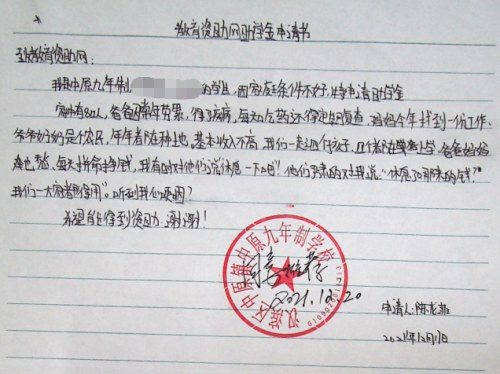 教育资助网助学金申请书
致教育资助网:
我是中原九年制 的学生,因家庭条件不好,特申请助学金
家中有8口人,爸爸因常年劳累,得了病,每天吃药还得定期复查,妈妈今年找到一份工作.
爷爷奶奶是个农民,年年都在种地,基本收入不高,我们一起四个孩子,且个都在学校上学,爸爸妈妈
着急,每天拼命挣钱,我有时对他们说休息一下吧!他们严肃的对我说:“休息了那来的钱?
我们一大家都得用”。听到我们
希望能得到资助.谢谢!
汉滨区中原镇中原九年制学校
同意推荐
2021.12.20
申请人:陈龙
2021年12月17日